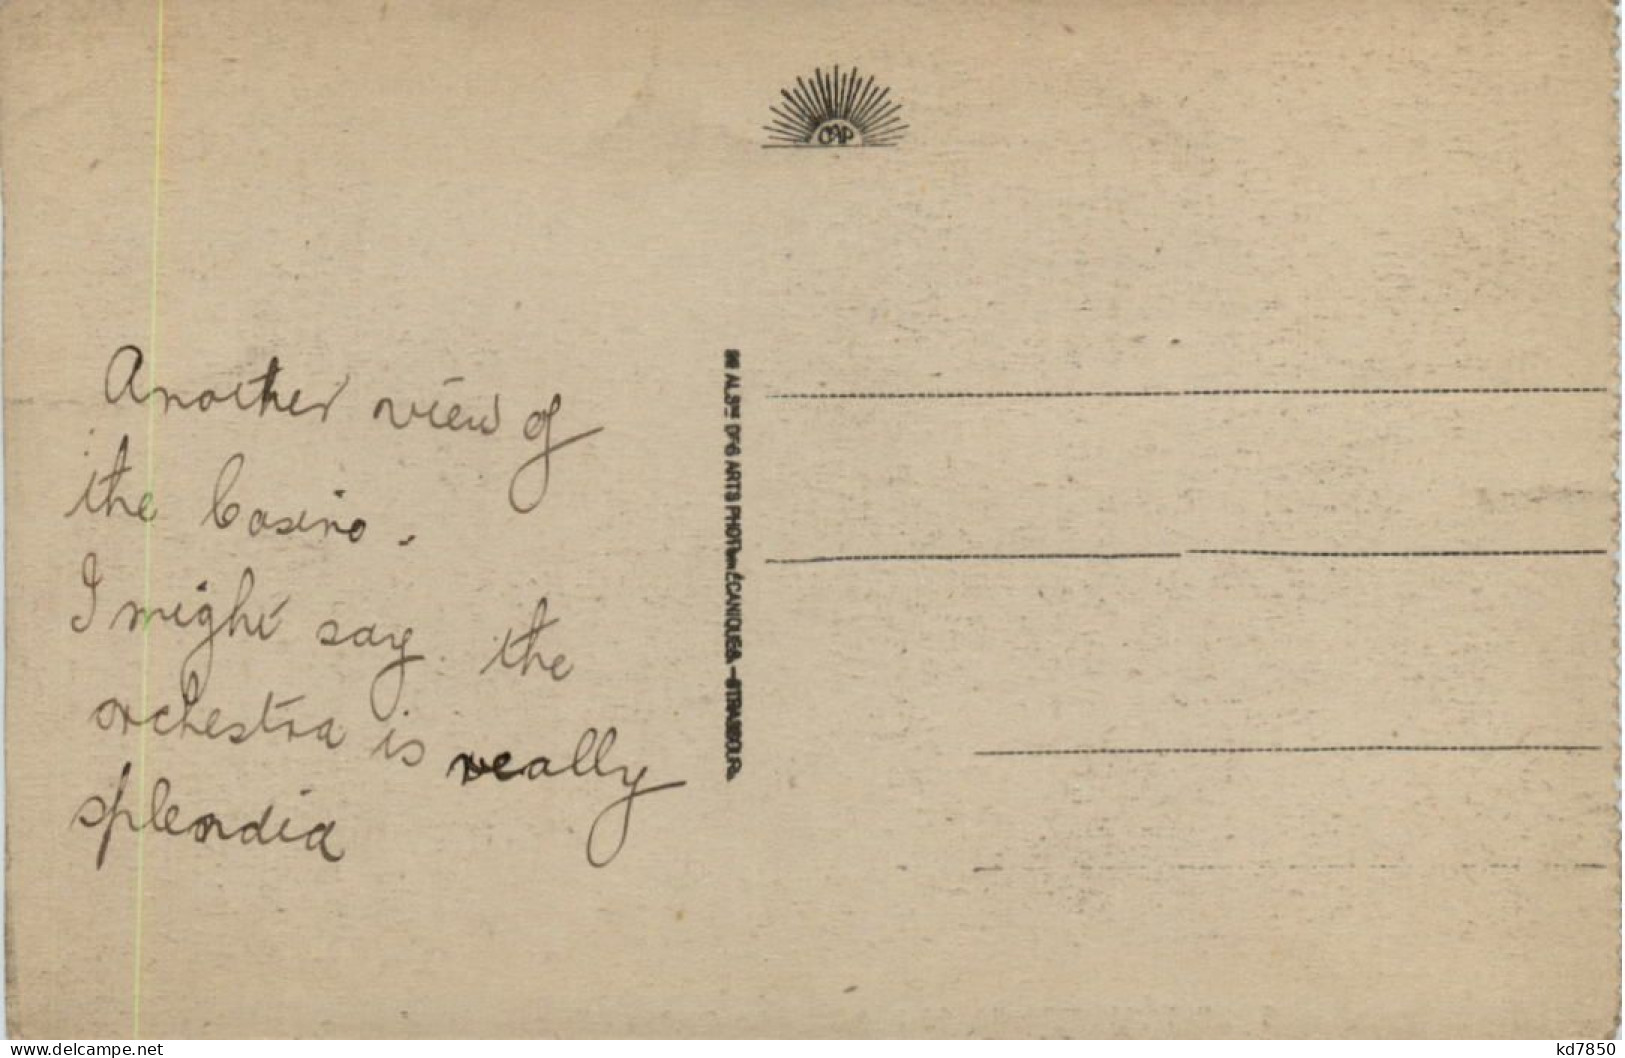 CAP
Another view of
the Casino.
I might say the
orchestra is really
splendid
ARTS PHOTOMÉCANIQUES. - STRASBOURG
www.delcampe.net
kd7850